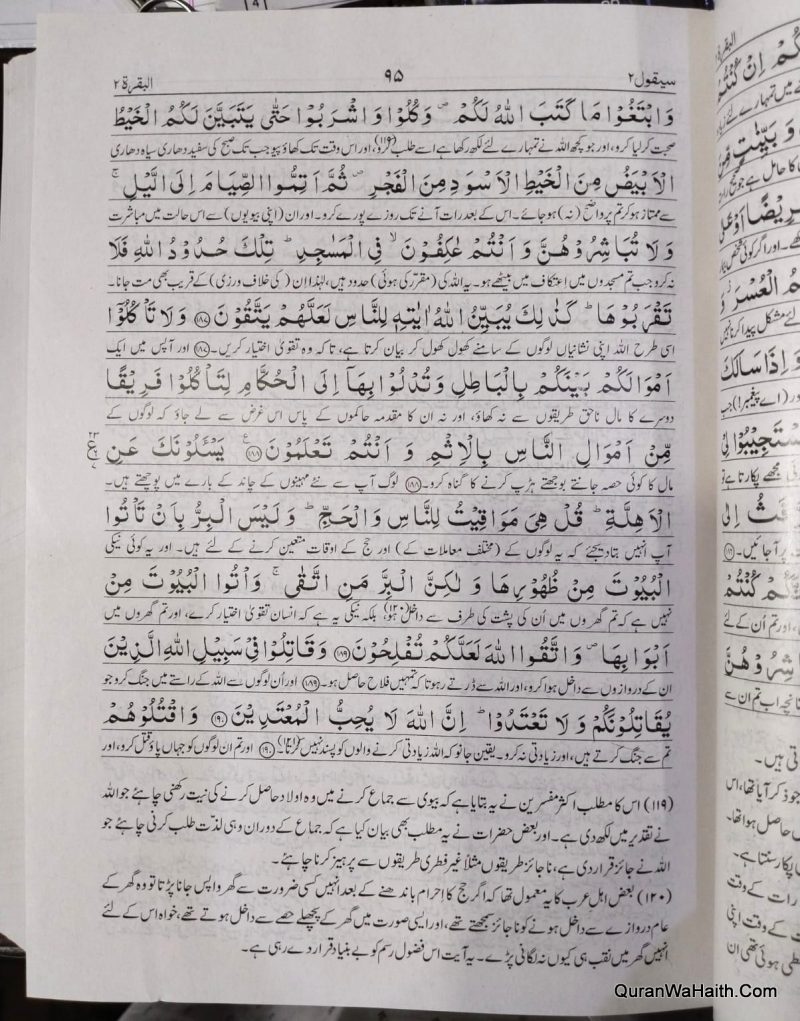 سیقول ۲
۹۵
البقرۃ ۲
وَابْتَغُوْا مَا كَتَبَ اللّٰهُ لَكُمْ ۪ وَكُلُوْا وَاشْرَبُوْا حَتّٰى يَتَبَيَّنَ لَكُمُ الْخَيْطُ
صحبت کر لیا کرو، اور جو کچھ اللہ نے تمہارے لئے لکھ رکھا ہے اسے طلب کرو،(۱۱۹) اور اس وقت تک کھاؤ پیو جب تک صبح کی سفید دھاری سیاہ دھاری
الْاَبْيَضُ مِنَ الْخَيْطِ الْاَسْوَدِ مِنَ الْفَجْرِ ۪ ثُمَّ اَتِمُّوا الصِّيَامَ اِلَى الَّيْلِ ۚ
سے ممتاز ہو کر تم پر واضح (نہ) ہو جائے۔ اس کے بعد رات آنے تک روزے پورے کرو۔ اور ان (اپنی بیویوں) سے اس حالت میں مباشرت
وَلَا تُبَاشِرُوْهُنَّ وَاَنْتُمْ عٰكِفُوْنَ ۙ فِى الْمَسٰجِدِ ؕ تِلْكَ حُدُوْدُ اللّٰهِ فَلَا
نہ کرو جب تم مسجدوں میں اعتکاف میں بیٹھے ہو۔ یہ اللہ کی (مقرر کی ہوئی) حدود ہیں، لہٰذا ان (کی خلاف ورزی) کے قریب بھی مت جانا۔
تَقْرَبُوْهَا ؕ كَذٰلِكَ يُبَيِّنُ اللّٰهُ اٰيٰتِهٖ لِلنَّاسِ لَعَلَّهُمْ يَتَّقُوْنَ ﴿۱۸۷﴾ وَلَا تَاْكُلُوْٓا
اسی طرح اللہ اپنی نشانیاں لوگوں کے سامنے کھول کھول کر بیان کرتا ہے، تاکہ وہ تقویٰ اختیار کریں۔﴿۱۸۷﴾ اور آپس میں ایک
اَمْوَالَكُمْ بَيْنَكُمْ بِالْبَاطِلِ وَتُدْلُوْا بِهَآ اِلَى الْحُكَّامِ لِتَاْكُلُوْا فَرِيْقًا
دوسرے کا مال ناحق طریقوں سے نہ کھاؤ، اور نہ ان کا مقدمہ حاکموں کے پاس اس غرض سے لے جاؤ کہ لوگوں کے
مِّنْ اَمْوَالِ النَّاسِ بِالْاِثْمِ وَاَنْتُمْ تَعْلَمُوْنَ ﴿۱۸۸﴾ يَسْـَٔلُوْنَكَ عَنِ
مال کا کوئی حصہ جانتے بوجھتے ہڑپ کرنے کا گناہ کرو۔﴿۱۸۸﴾ لوگ آپ سے نئے مہینوں کے چاند کے بارے میں پوچھتے ہیں۔
الْاَهِلَّةِ ؕ قُلْ هِىَ مَوَاقِيْتُ لِلنَّاسِ وَالْحَجِّ ؕ وَلَيْسَ الْبِرُّ بِاَنْ تَاْتُوا
آپ انہیں بتا دیجئے کہ یہ لوگوں کے (مختلف معاملات کے) اور حج کے اوقات متعین کرنے کے لئے ہیں۔ اور یہ کوئی نیکی
الْبُيُوْتَ مِنْ ظُهُوْرِهَا وَلٰكِنَّ الْبِرَّ مَنِ اتَّقٰى ۚ وَاْتُوا الْبُيُوْتَ مِنْ
نہیں ہے کہ تم گھروں میں اُن کی پشت کی طرف سے داخل ہو،(۱۲۰) بلکہ نیکی یہ ہے کہ انسان تقویٰ اختیار کرے، اور تم گھروں میں
اَبْوَابِهَا ۪ وَاتَّقُوا اللّٰهَ لَعَلَّكُمْ تُفْلِحُوْنَ ﴿۱۸۹﴾ وَقَاتِلُوْا فِىْ سَبِيْلِ اللّٰهِ الَّذِيْنَ
ان کے دروازوں سے داخل ہوا کرو، اور اللہ سے ڈرتے رہو تاکہ تمہیں فلاح حاصل ہو۔﴿۱۸۹﴾ اور اُن لوگوں سے اللہ کے راستے میں جنگ کرو جو
يُقَاتِلُوْنَكُمْ وَلَا تَعْتَدُوْا ؕ اِنَّ اللّٰهَ لَا يُحِبُّ الْمُعْتَدِيْنَ ﴿۱۹۰﴾ وَاقْتُلُوْهُمْ
تم سے جنگ کرتے ہیں، اور زیادتی نہ کرو۔ یقین جانو کہ اللہ زیادتی کرنے والوں کو پسند نہیں کرتا۔﴿۱۹۰﴾ اور تم ان لوگوں کو جہاں پاؤ قتل کرو، اور
(۱۱۹) اس کا مطلب اکثر مفسرین نے یہ بتایا ہے کہ بیوی سے جماع کرنے میں وہ اولاد حاصل کرنے کی نیت رکھنی چاہئے جو اللہ
نے تقدیر میں لکھ دی ہے۔ اور بعض حضرات نے یہ مطلب بھی بیان کیا ہے کہ جماع کے دوران وہی لذت طلب کرنی چاہئے جو
اللہ نے جائز قرار دی ہے، ناجائز طریقوں مثلاً غیر فطری طریقوں سے پرہیز کرنا چاہئے۔
(۱۲۰) بعض اہل عرب کا یہ معمول تھا کہ اگر حج کا اِحرام باندھنے کے بعد انہیں کسی ضرورت سے گھر واپس جانا پڑتا تو وہ گھر کے
عام دروازے سے داخل ہونے کو ناجائز سمجھتے تھے، اور ایسی صورت میں گھر کے پچھلے حصے سے داخل ہوتے تھے، خواہ اس کے لئے
انہیں گھر میں نقب ہی کیوں نہ لگانی پڑے۔ یہ آیت اس فضول رسم کو بے بنیاد قرار دے رہی ہے۔
QuranWaHaith.Com